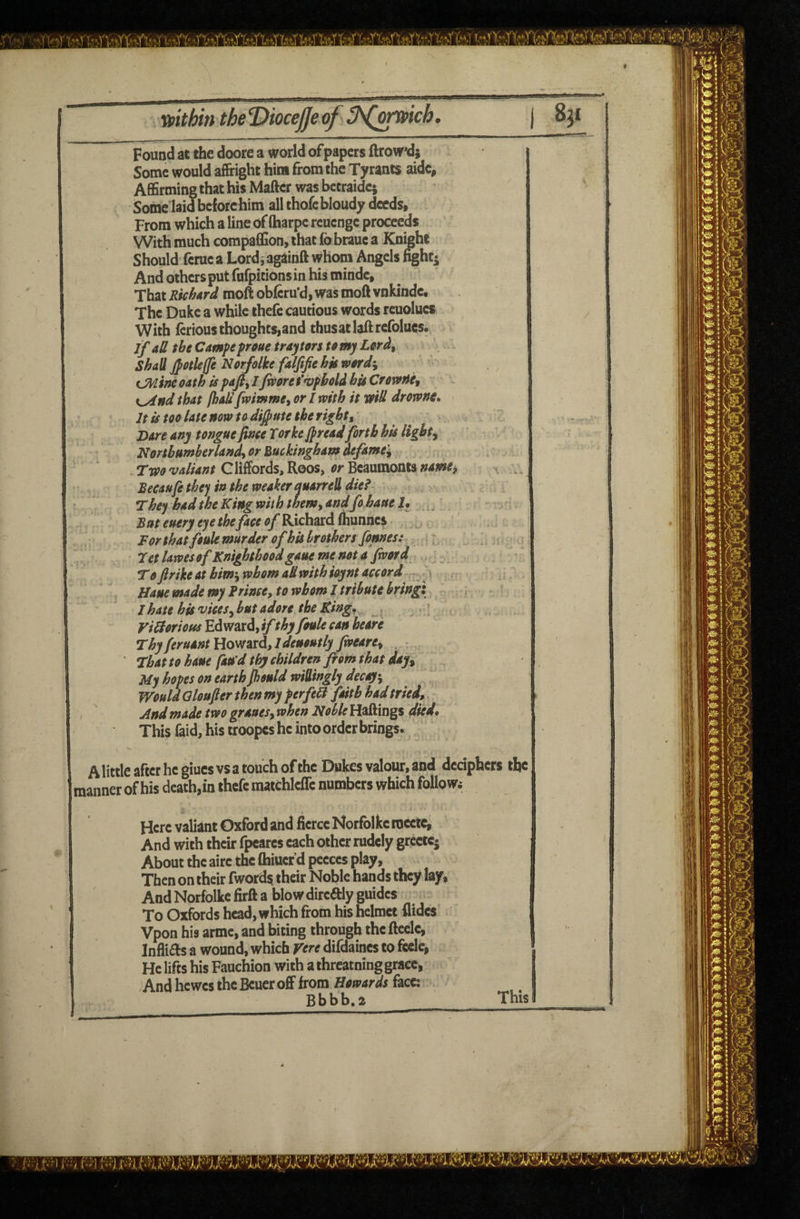 within the Diocesse of Norwich. 831
Found at the doore a world of papers ſtrow'd;
Some would affright him from the Tyrants aide,
Affirming that his Maſter was betraide;
Some laid before him all thoſe bloudy deeds,
From which a line of ſharpe reuenge proceeds
With much compaſſion, that ſo braue a Knight
Should ſerue a Lord, againſt whom Angels fight;
And others put ſuſpitions in his minde,
That Richard moſt obſeru'd, was moſt vnkinde.
The Duke a while theſe cautious words reuolues
With ſerious thoughts, and thus at laſt reſolues.
If all the Campe proue traytors to my Lord,
Shall ſpotleſſe Norfolke falſifie his word;
Mine oath is paſt, I ſwore t'vphold his Crowne,
And that ſhall ſwimme, or I with it will drowne.
It is too late now to diſpute the right,
Dare any tongue ſince Yorke ſpread forth his light,
Northumberland, or Buckingham defame,
Two valiant Cliffords, Roos, or Beaumonts name,
Becauſe they in the weaker quarrell die?
They had the King with them, and ſo haue I.
But euery eye the face of Richard ſhunnes
For that foule murder of his brothers ſonnes:
Yet lawes of Knighthood gaue me not a ſword
To ſtrike at him, whom all with ioynt accord
Haue made my Prince, to whom I tribute bring:
I hate his vices, but adore the King.
Victorious Edward, if thy ſoule can heare
Thy ſeruant Howard, I deuoutly ſweare,
That to haue ſau'd thy children from that day,
My hopes on earth ſhould willingly decay;
Would Glouſter then my perfect faith had tried,
And made two graues, when Noble Haſtings died.
This ſaid, his troopes he into order brings.
A little after he giues vs a touch of the Dukes valour, and deciphers the
manner of his death, in theſe matchleſſe numbers which follow.
Here valiant Oxford and fierce Norfolke meete,
And with their ſpeares each other rudely greete;
About the aire the ſhiuer'd peeces play,
Then on their ſwords their Noble hands they lay,
And Norfolke firſt a blow directly guides
To Oxfords head, which from his helmet ſlides
Vpon his arme, and biting through the ſteele,
Inflicts a wound, which Vere diſdaines to feele,
He lifts his Fauchion with a threatning grace,
And hewes the Beuer off from Howards face:
Bbbb. 2 This